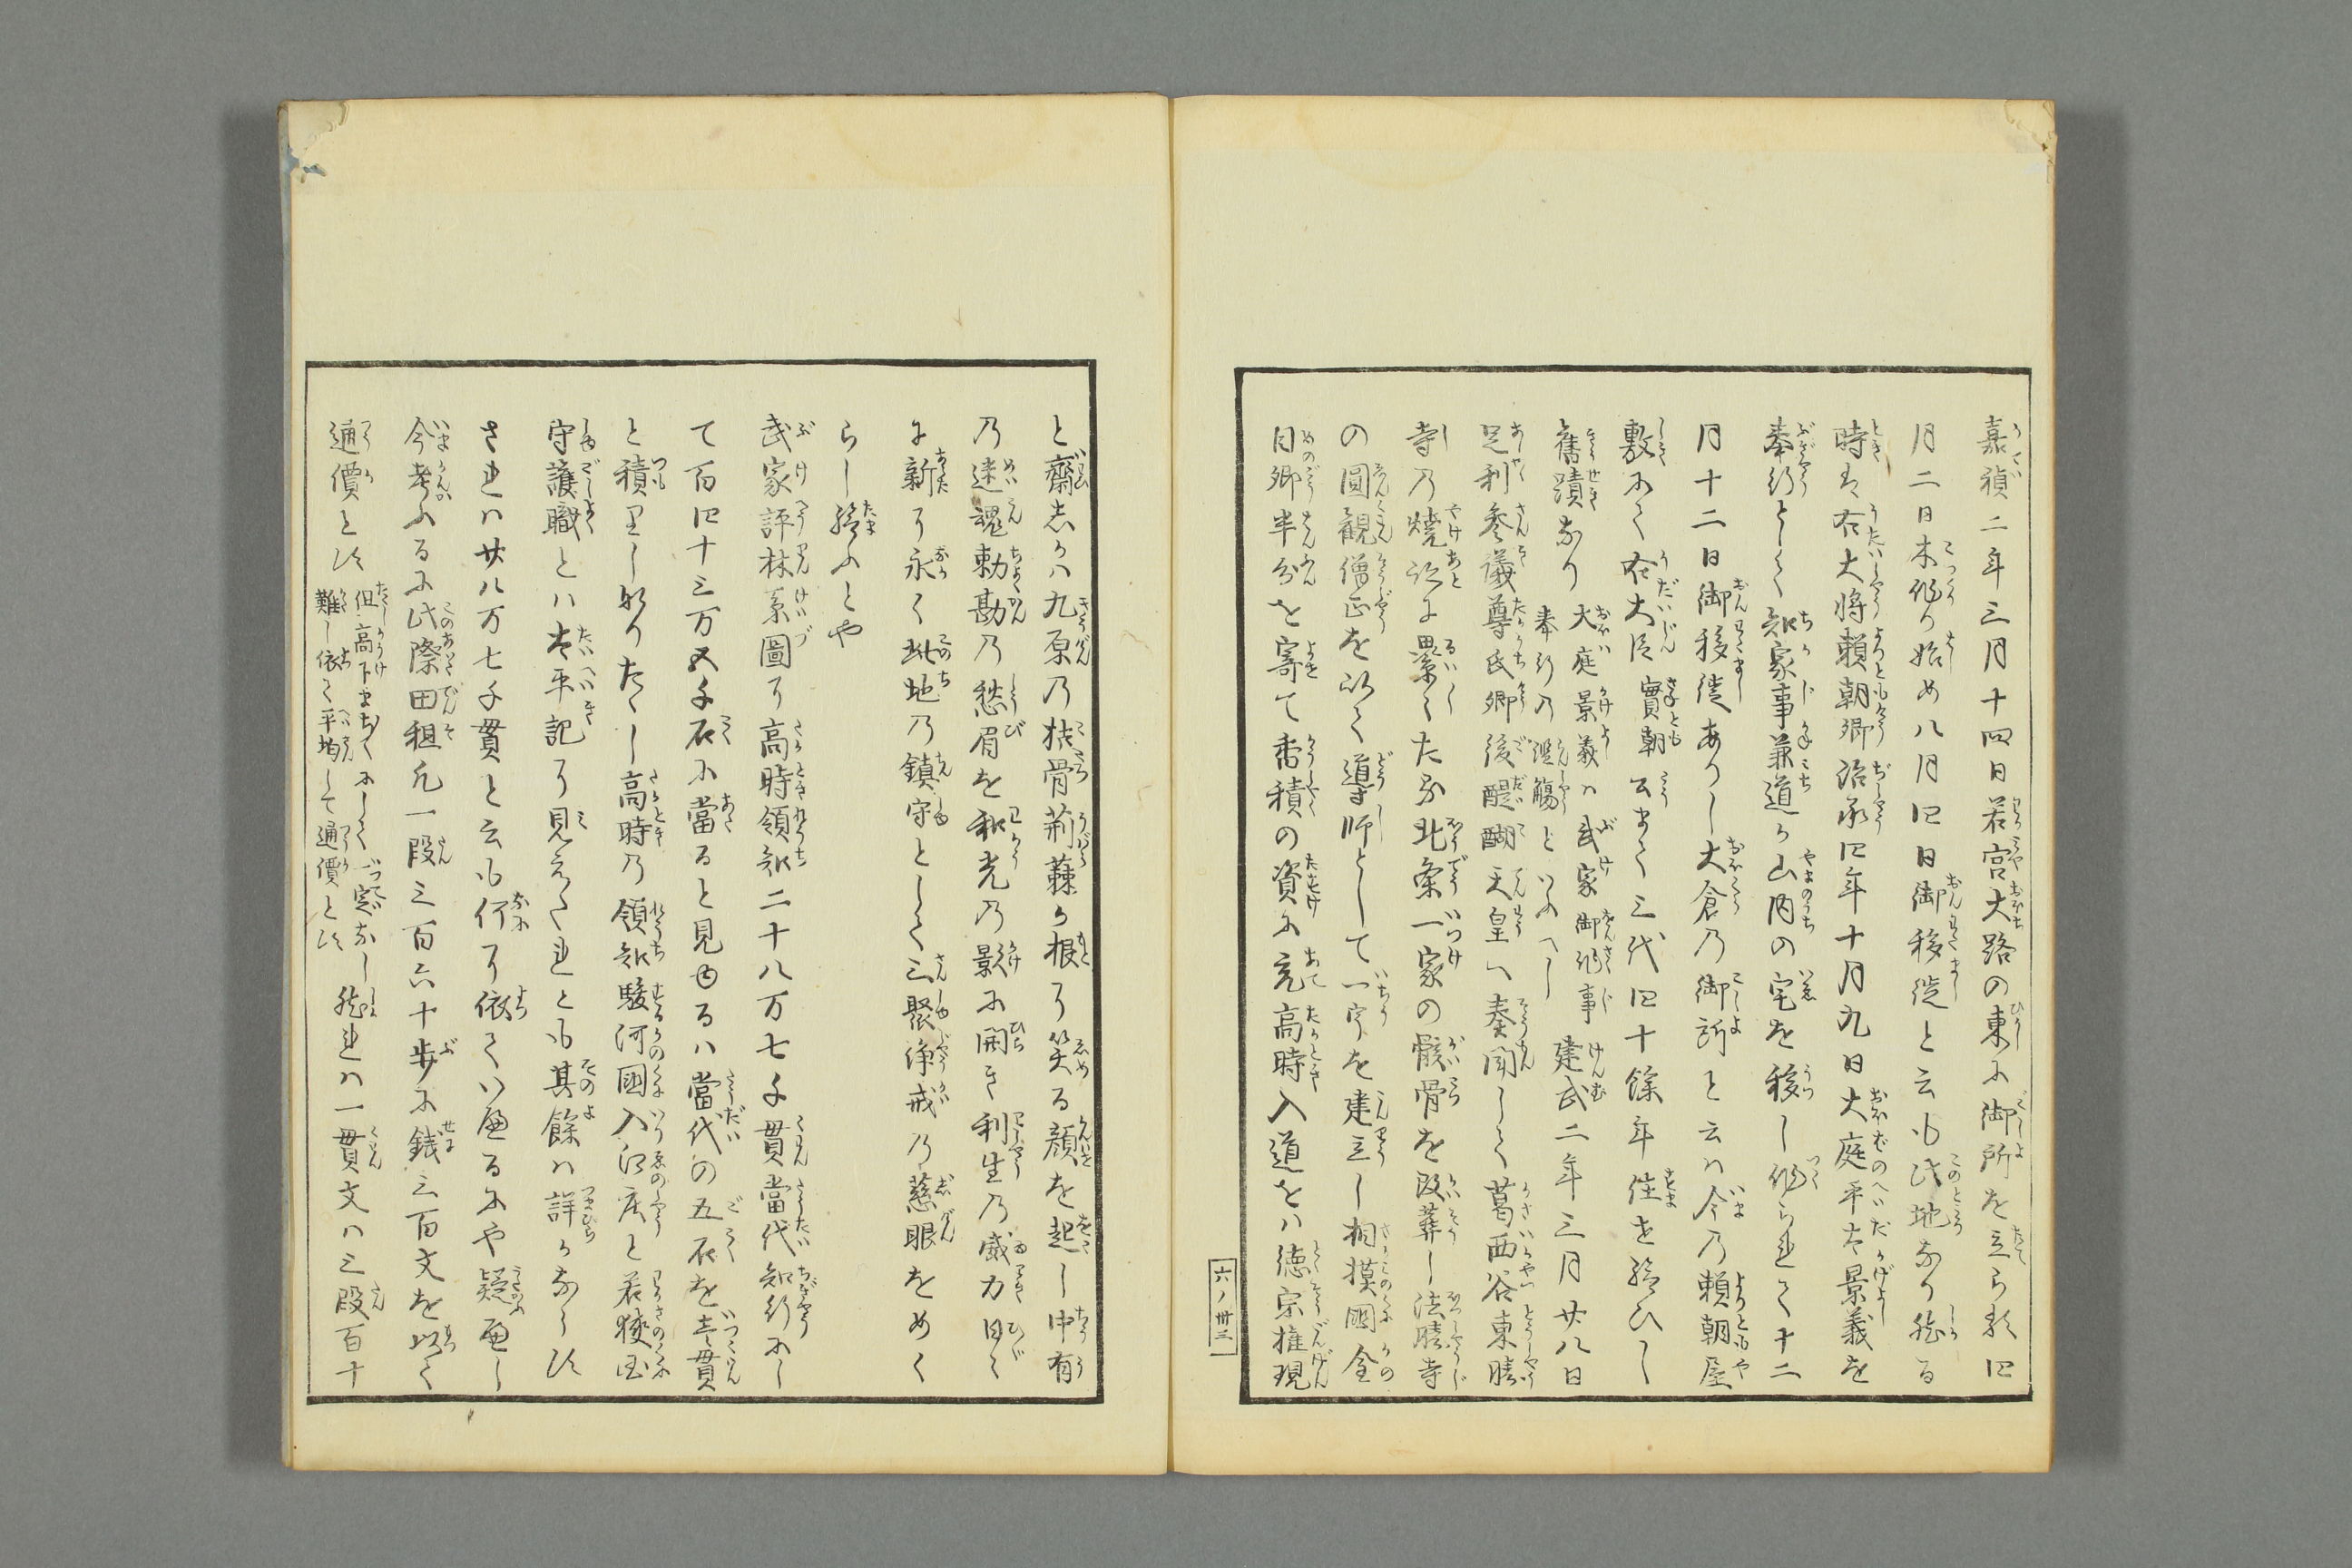 嘉禎二年三月十四日若宮大路の東に御所を立られ四
月二日木作り始め八月四日御移徙と云も此地なり然る
時は右大将頼朝卿治承四年十月九日大庭平太景義を
奉行として知家事兼道か山内の宅を移し作られて十二
月十二日御移徙ありし大倉乃御所と云ハ今乃頼朝屋
敷にて右大臣實朝公まて三代四十餘年住せ給ひし
舊蹟なり
大庭景義ハ武家御作事
奉行乃濫觴といふへし
建武二年三月廿八日
足利参議尊氏卿後醍醐天皇へ奏聞して葛西谷東勝
寺乃燒跡に累々たる北条一家の骸骨を改葬し法勝寺
の圓観僧正を以て導師として一宇を建立し相摸國金
目郷半分を寄て香積の資に充高時入道をハ徳宗権現
六ノ卅三
と齋しかハ九原乃枯骨荊蕀か根に笑る顔を起し中有
乃迷魂勅勘乃愁眉を和光乃影に開き利生乃威力日々
に新に永く此地乃鎮守として三聚浄戒乃慈眼をめく
らし給ふとや
武家評林系圖に高時領知二十八万七千貫當代知行にし
て百四十三万五千石に當ると見ゆるハ當代の五石を壱貫
と積りし也たゝし高時乃領知駿河國入江庄と若狭国
守護職とハ太平記に見えたれとも其餘ハ詳かならす
されハ廿八万七千貫と云も何に依ていへるにや疑へし
今考ふるに此際田租凡一段三百六十歩に銭三百文を以て
通價とす
但高下まち〳〵にして一定なし
難し依て平均して通價とす
然れハ一貫文ハ三段百十